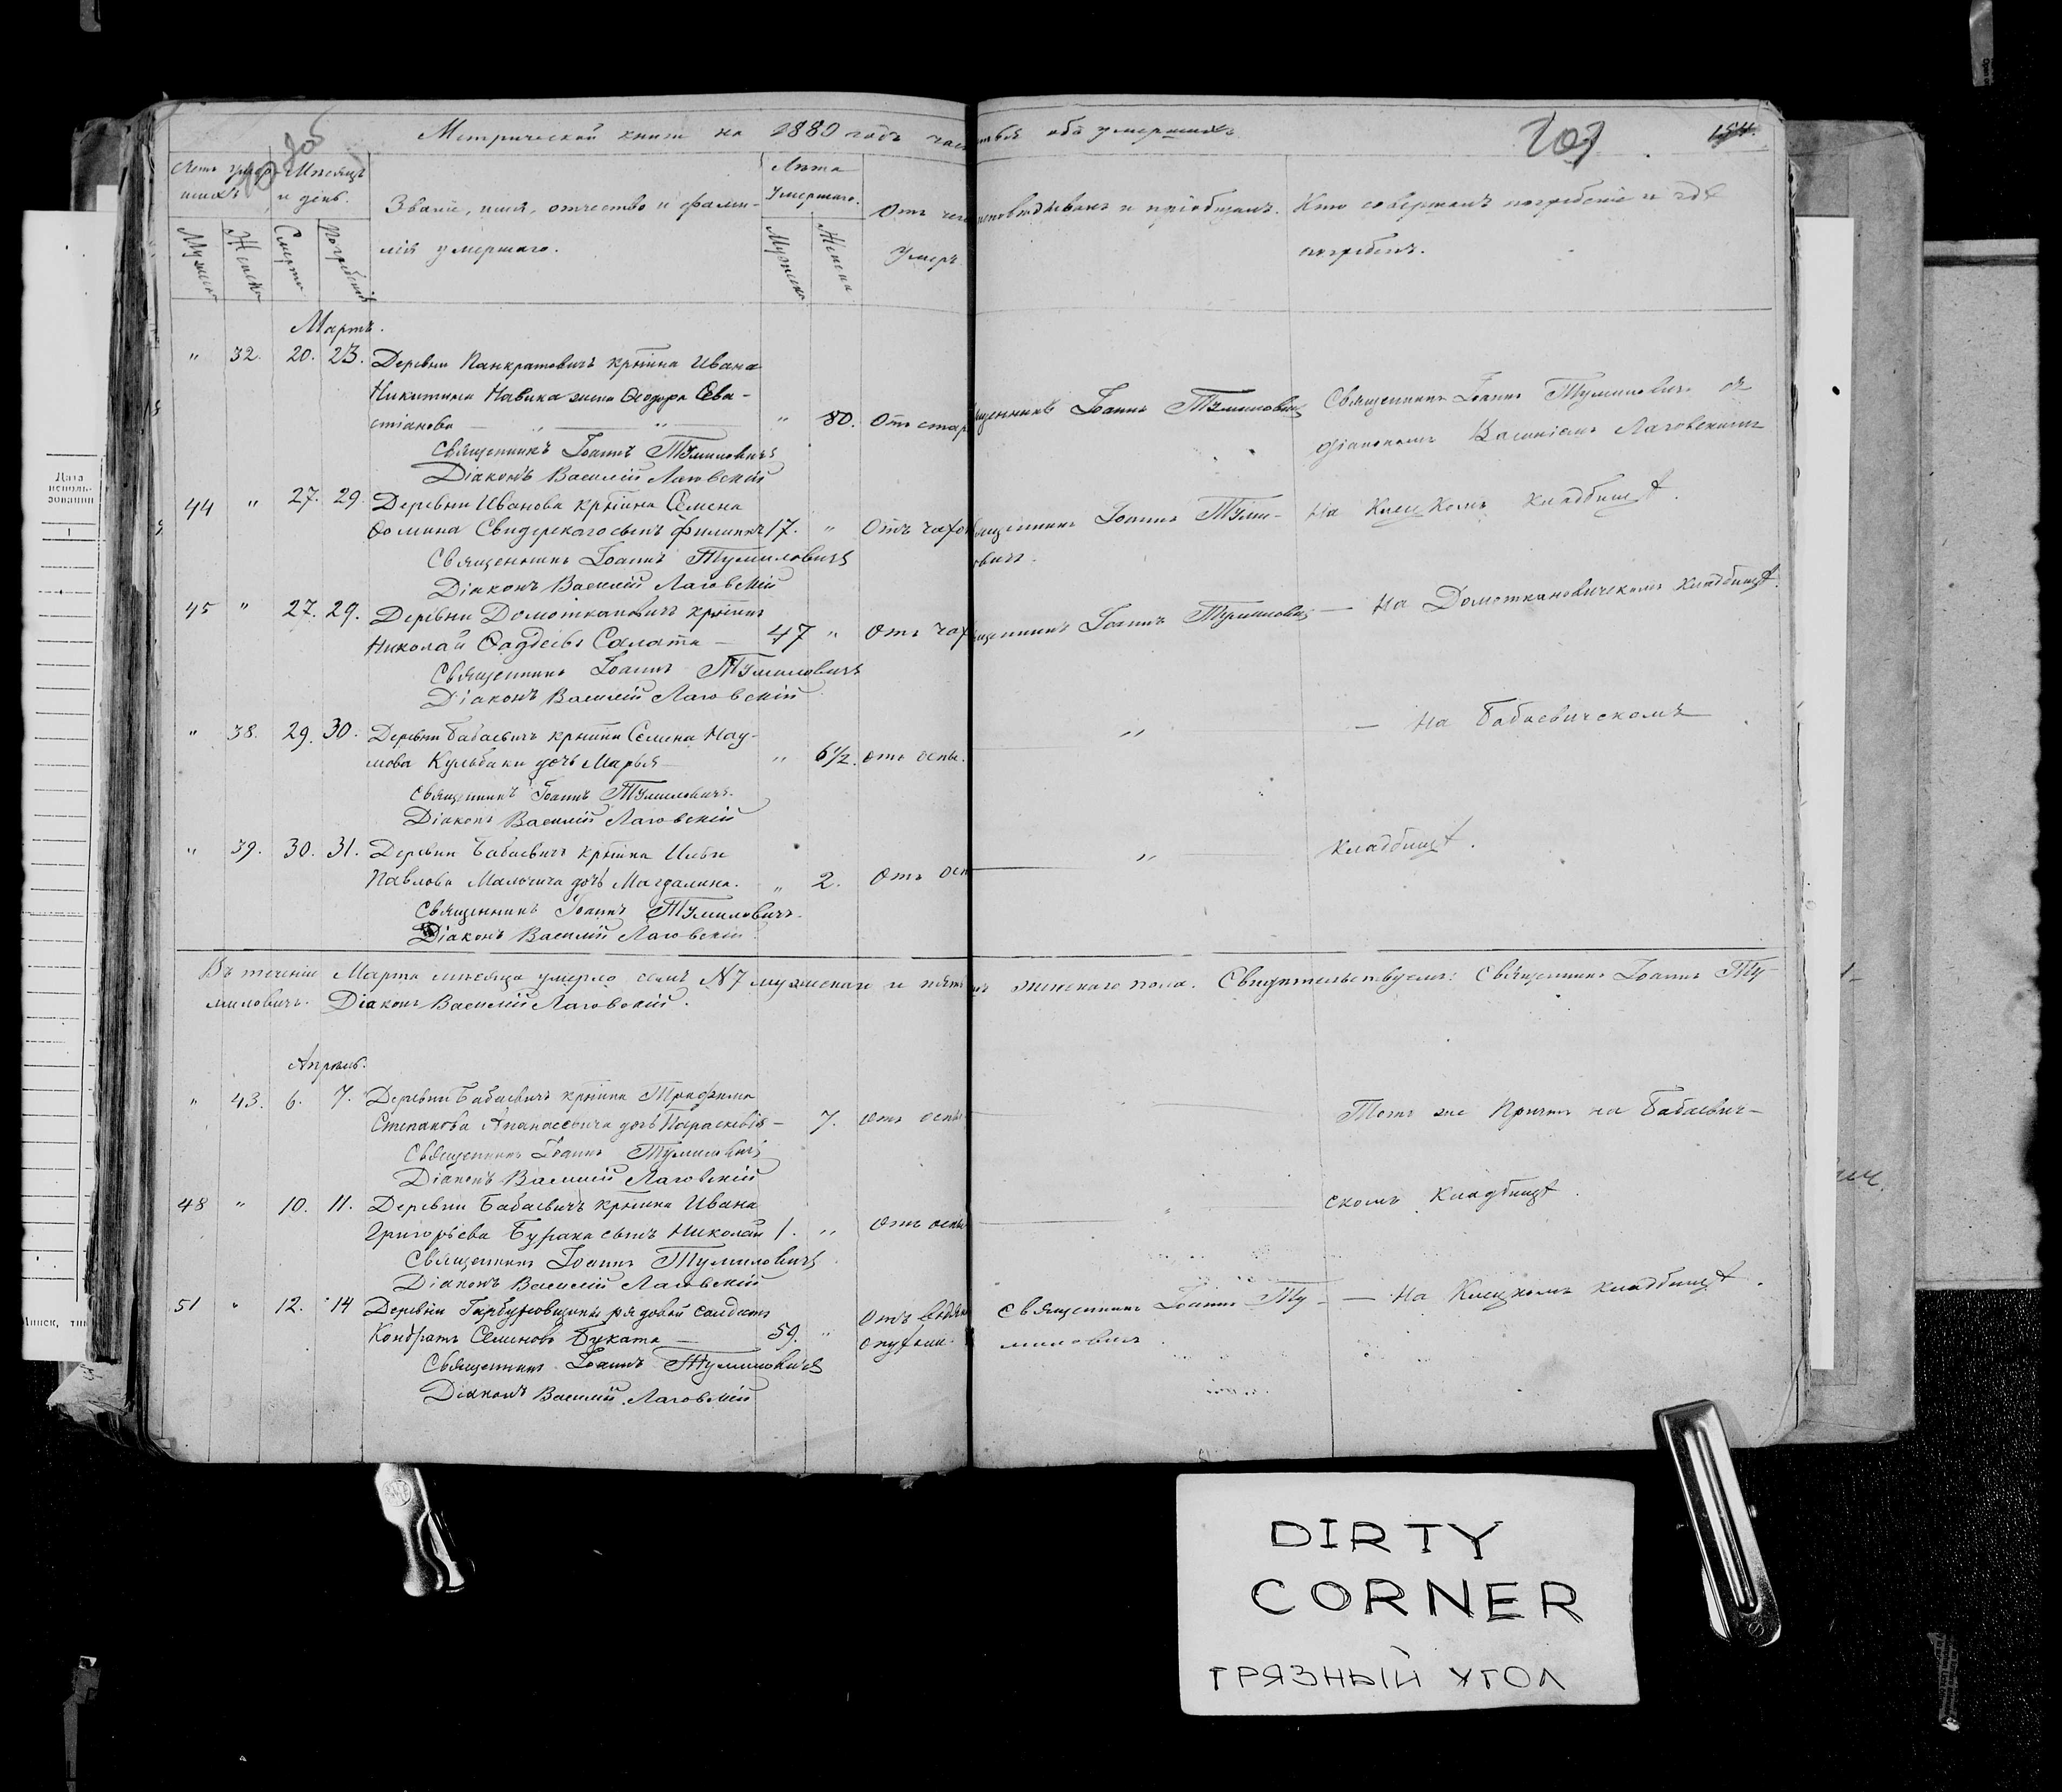 Метрической книги на 1880 годъ часть третья объ умершихъ
207
154.
Мѣсяцъ
и день.
Званіе, имя, отчество и фами-
лія умершаго.
Лѣта
Умершаго.
Отъ чего
Умеръ.
исповѣдывалъ и пріобщалъ.
Кто совершалъ погребеніе и гдѣ
погребенъ.
Мужеска
Женска
Смерти
Погребенія
Мужеска
Женска
Мартъ.
" 32. 20. 23. Деревни Панкратовичъ крѣстина Ивана
Никитина Навика жена Ѳеодора Сева-
стіанова " 80. Отъ стар
Священникъ Іоаннъ Тумиловичъ
Священникъ Іоаннъ Тумиловичъ съ
діакономъ Василіемъ Лаговскимъ
Священникъ Іоаннъ Тумиловичъ
Діаконъ Василій Лаговскій
44 " 27. 29. Деревни Иванова крѣстина Семена
Ѳомина Свидерскаго сынъ Филиппъ 17. " Отъ чахот
Священникъ Іоаннъ Туми-
ловичъ.
На Клецкомъ кладбищѣ.
Священникъ Іоаннъ Тумиловичъ
Діаконъ Василій Лаговскій
45 " 27. 29. Деревни Домоткановичъ крѣстинъ
Николай Ѳаддеевъ Салата — 47 " Отъ чах
Священникъ Іоаннъ Тумиловичъ — На Домоткановичскомъ кладбищѣ.
Священникъ Іоаннъ Тумиловичъ
Діаконъ Василій Лаговскій
" 38. 29. 30. Деревни Бабаевичъ крѣстина Семена Нау-
мова Кульбаки дочь Марья " 6½. отъ оспы. " — На Бабаевичскомъ
Священникъ Іоаннъ Тумиловичъ.
Діаконъ Василій Лаговскій
" 39. 30. 31. Деревни Бабаевичъ крѣстина Ильи
Павлова дочь Магдалина. " 2. Отъ осп " кладбищѣ.
Священникъ Іоаннъ Тумиловичъ.
Діаконъ Василій Лаговскій
Въ теченіи Марта мѣсяца умерло семь N7 мужескаго и пять женскаго пола. Свидѣтельствуемъ: Священникъ Іоаннъ Ту-
миловичъ. Діаконъ Василій Лаговскій.
Апрѣль.
" 43. 6. 7. Деревни Бабаевичъ крѣстина Трофима
Степанова Апанасевича дочь Параскевія — 7. отъ оспы
Тотъ же Причтъ на Бабаевич-
Священникъ Іоаннъ Тумиловичъ
Діаконъ Василій Лаговскій
48 " 10. 11. Деревни Бабаевичъ крѣстина Ивана
скомъ кладбищѣ.
Григорьева Бурака сынъ Николай 1. " Отъ оспы
Священникъ Іоаннъ Тумиловичъ
Діаконъ Василій Лаговскій
51 " 12. 14 Деревни рядовой солдатъ
Кондратъ Семеновъ Буката — 59. " Отъ водян
опухоли
Священникъ Іоаннъ Ту-
миловичъ
— На Клецкомъ кладбищѣ.
Священникъ Іоаннъ Тумиловичъ
Діаконъ Василій Лаговскій
Дата
исполь-
зования
1
DIRTY
CORNER
ГРЯЗНЫЙ УГОЛ